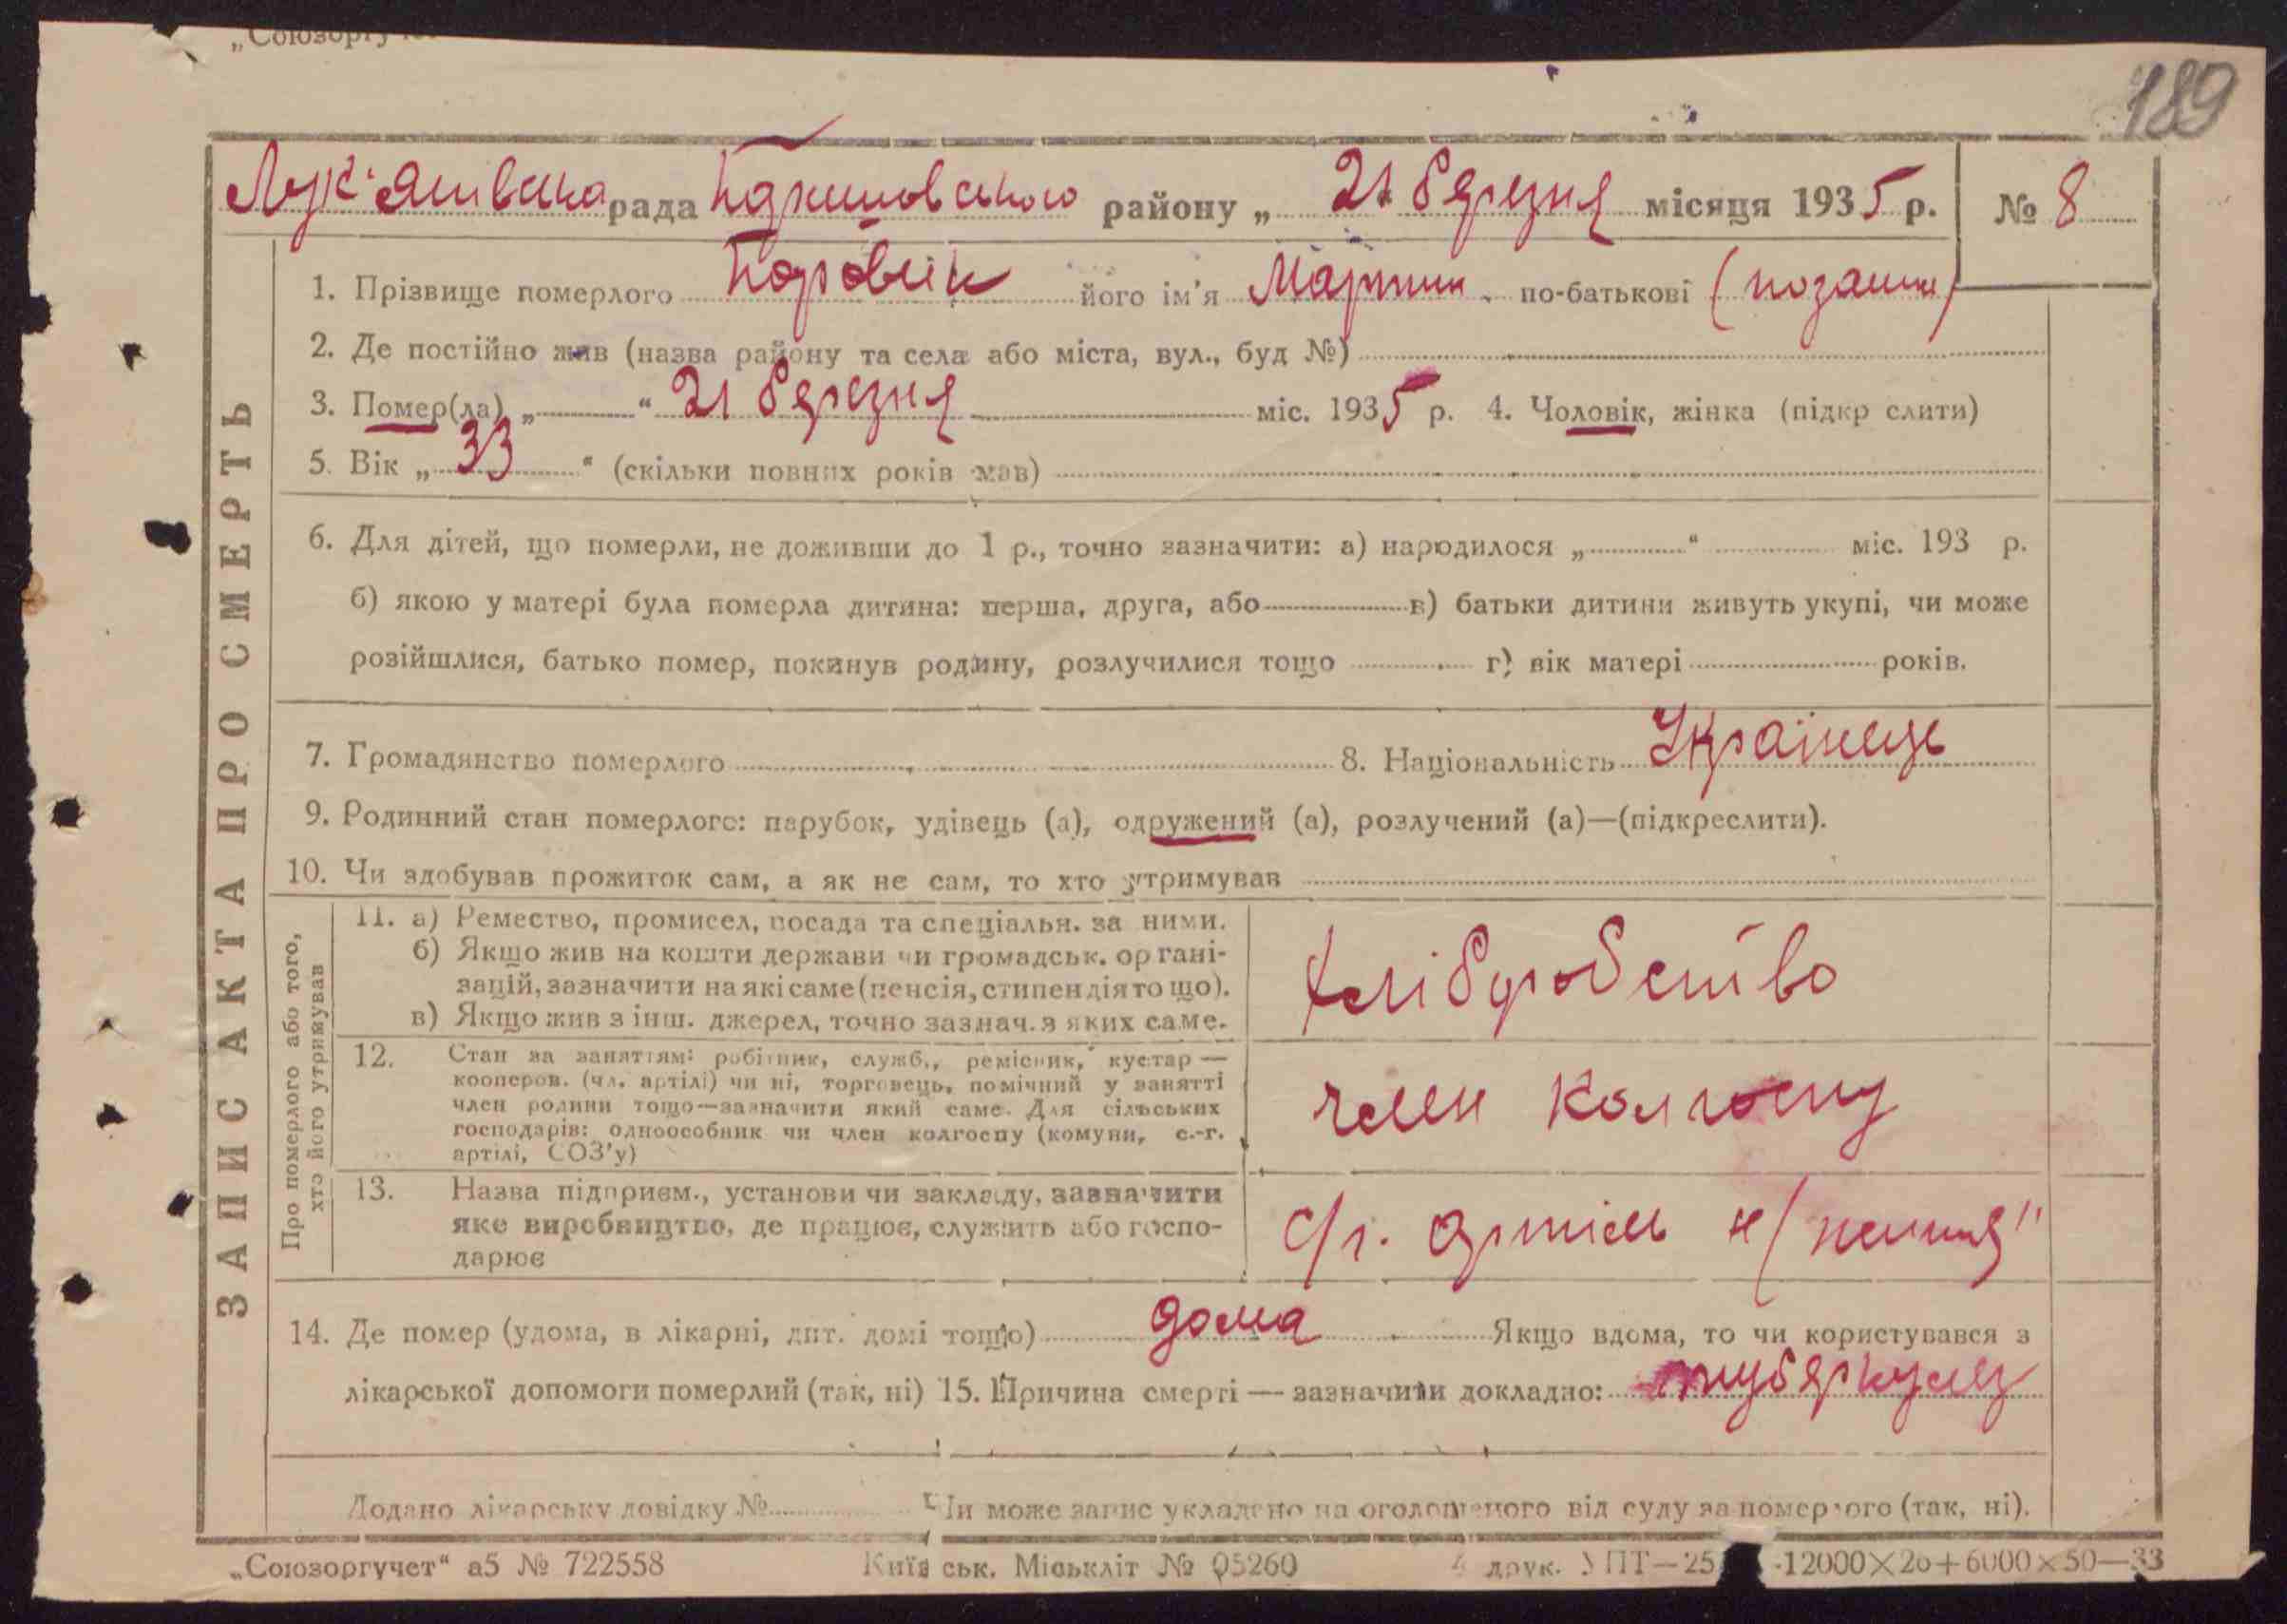 „Союзоргу
189
Лук'янівська рада Баришовського району „ 21 березня місяця 1935 р. № 8
1. Прізвище померлого Боровик його ім'я Мартин по-батькові
2. Де постійно жив (назва району та села або міста, вул., буд №)
3. Помер(ла) „ “ 21 березня міс. 1935 р. 4. Чоловік, жінка (підкр слити)
5. Вік „ 33 “ (скільки повних років мав)
6. Для дітей, що померли, не доживши до 1 р., точно зазначити: а) народилося „ “ міс. 193 р.
б) якою у матері була померла дитина: перша, друга, або в) батьки дитини живуть укупі, чи може
розійшлися, батько помер, покинув родину, розлучилися тощо г) вік матері років.
7. Громадянство померлого 8. Національність Українець
9. Родинний стан померлого: парубок, удівець (а), одружений (а), розлучений (а)—(підкреслити).
10. Чи здобував прожиток сам, а як не сам, то хто утримував
ЗАПИС АКТА ПРО СМЕРТЬ
Про померлого або того,
хто його утримував
11. а) Ремество, промисел, посада та спеціальн. за ними.
б) Якщо жив на кошти держави чи громадськ. органі-
зацій, зазначити на які саме (пенсія, стипендія то що).
в) Якщо жив з інш. джерел, точно зазнач. з яких саме.
хліборобство
12. Стан за заняттям: робітник, служб., ремісник, кустар —
кооперов. (чл. артілі) чи ні, торговець, помічний у занятті
член родини тощо—зазначити який саме. Для сільських
господарів: одноосібник чи член колгоспу (комуни, с.-г.
артілі, СОЗ'у)
член колгоспу
13. Назва підприєм., установи чи закладу, зазначити
яке виробництво, де працює, служить або госпо-
дарює
с/г. артіль
14. Де помер (удома, в лікарні, дит. домі тощо) дома Якщо вдома, то чи користувався з
лікарської допомоги померлий (так, ні) 15. Причина смерті — зазначити докладно: туберкульоз
Додано лікарську довідку № Чи може запис укладено на оголошеного від суду за померлого (так, ні).
„Союзоргучет“ а5 № 722558 Київськ. Міськліт № 05260 4 друк. УПТ—25 -12000×20+6000×50—33